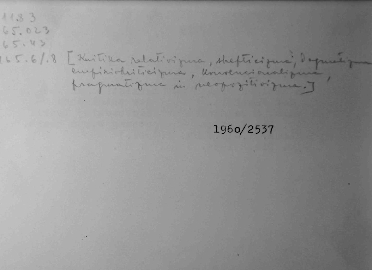 11.83
165.023
165.43
165.6/.8 [Kritika relativizma, skepticizma, dogmatizma
empiriokriticizma, konvencionalizma,
pragmatizma in neopozitivizma.]
1960/2537